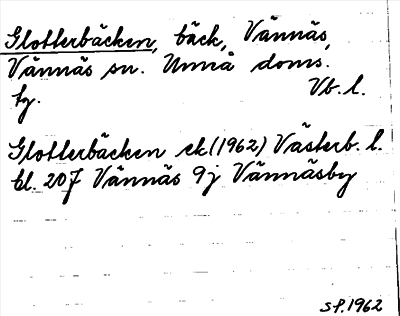 Glotterbäcken, bäck, Vännäs,
Vännäs sn. Umeå doms.
tg. Vb. l.
Glotterbäcken ek (1962) Västerb. l.
bl. 207 Vännäs 9j Vännäsby
SP. 1962